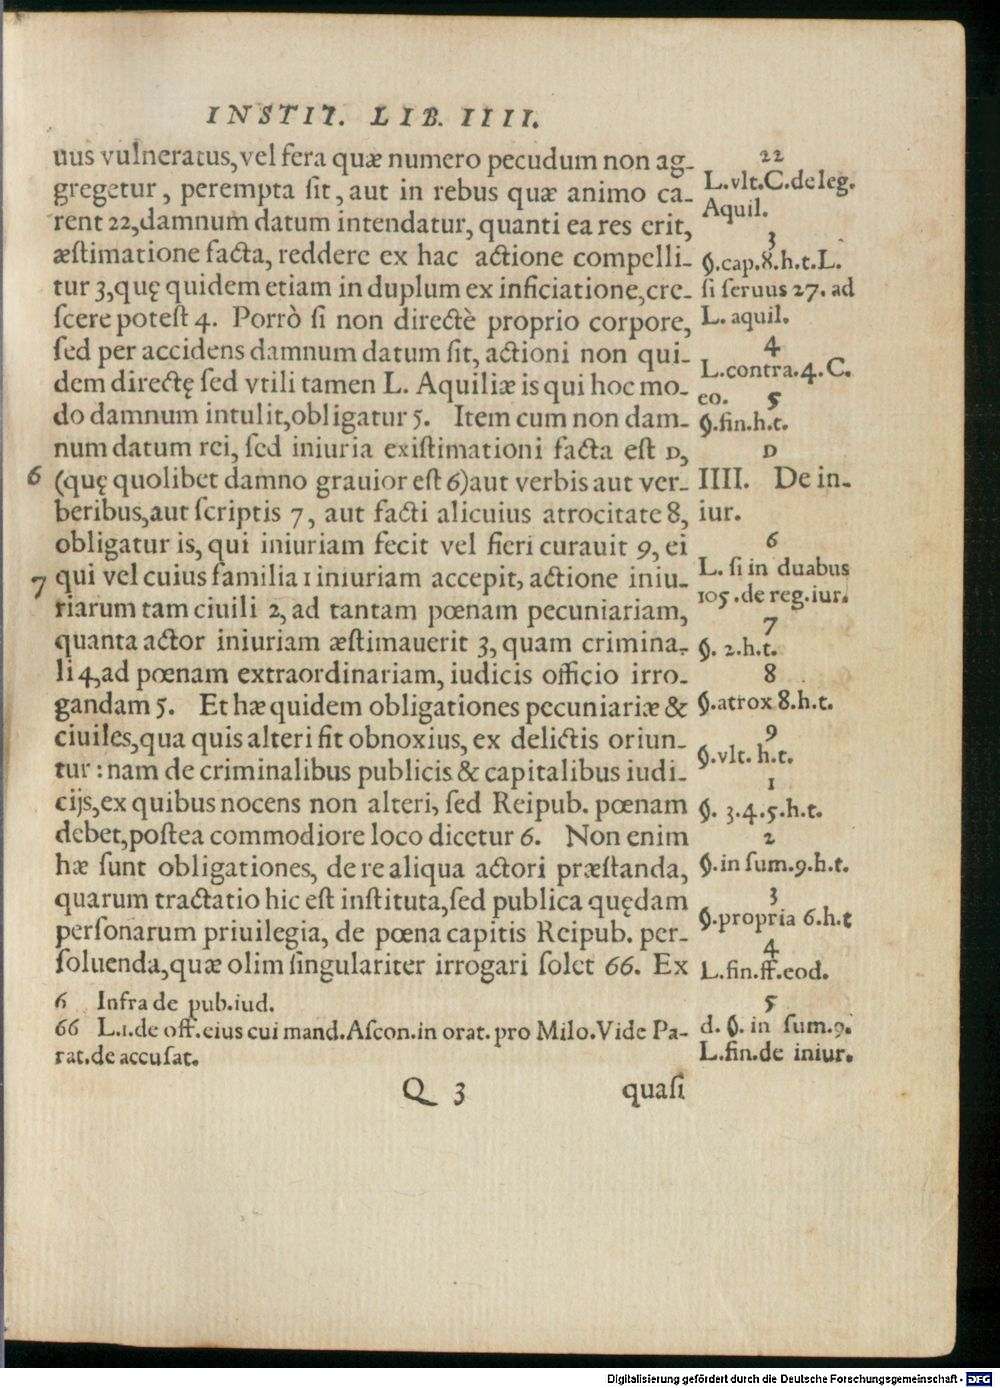 INSTIT. LIB. IIII.
uus vulneratus, vel fera quæ numero pecudum non ag-
gregetur, perempta sit, aut in rebus quæ animo ca-
rent 22, damnum datum intendatur, quanti ea res erit,
æstimatione facta, reddere ex hac actione compelli-
tur 3, quę quidem etiam in duplum ex inficiatione, cre-
scere potest 4. Porrò si non directè proprio corpore,
sed per accidens damnum datum sit, actioni non qui-
dem directę sed vtili tamen L. Aquiliæ is qui hoc mo-
do damnum intulit, obligatur 5. Item cum non dam-
num datum rei, sed iniuria existimationi facta est D,
6 (quę quolibet damno grauior est 6) aut verbis aut ver-
beribus, aut scriptis 7, aut facti alicuius atrocitate 8,
obligatur is, qui iniuriam fecit vel fieri curauit 9, ei
7 qui vel cuius familia 1 iniuriam accepit, actione iniu-
riarum tam ciuili 2, ad tantam pœnam pecuniariam,
quanta actor iniuriam æstimauerit 3, quam crimina-
li 4, ad pœnam extraordinariam, iudicis officio irro-
gandam 5. Et hæ quidem obligationes pecuniariæ &
ciuiles, qua quis alteri fit obnoxius, ex delictis oriun-
tur: nam de criminalibus publicis & capitalibus iudi-
cijs, ex quibus nocens non alteri, sed Reipub. pœnam
debet, postea commodiore loco dicetur 6. Non enim
hæ sunt obligationes, de re aliqua actori præstanda,
quarum tractatio hic est instituta, sed publica quędam
personarum priuilegia, de pœna capitis Reipub. per-
soluenda, quæ olim singulariter irrogari solet 66. Ex
6 Infra de pub. iud.
66 L.1. de off. eius cui mand. Ascon. in orat. pro Milo. Vide Pa-
rat. de accusat.
Q 3 quasi
22
L. vlt. C. de leg.
Aquil.
3
§. cap. 8. h. t. L.
si seruus 27. ad
L. aquil.
4
L. contra. 4. C.
eo. 5
§. fin. h. t.
D
IIII. De in-
iur.
6
L. si in duabus
105. de reg. iur.
7
§. 2. h. t.
8
§. atrox 8. h. t.
9
§. vlt. h. t.
1
§. 3. 4. 5. h. t.
2
§. in sum. 9. h. t.
3
§. propria 6. h. t
4
L. fin. ff. eod.
5
d. §. in sum. 9.
L. fin. de iniur.
Digitalisierung gefördert durch die Deutsche Forschungsgemeinschaft - DFG